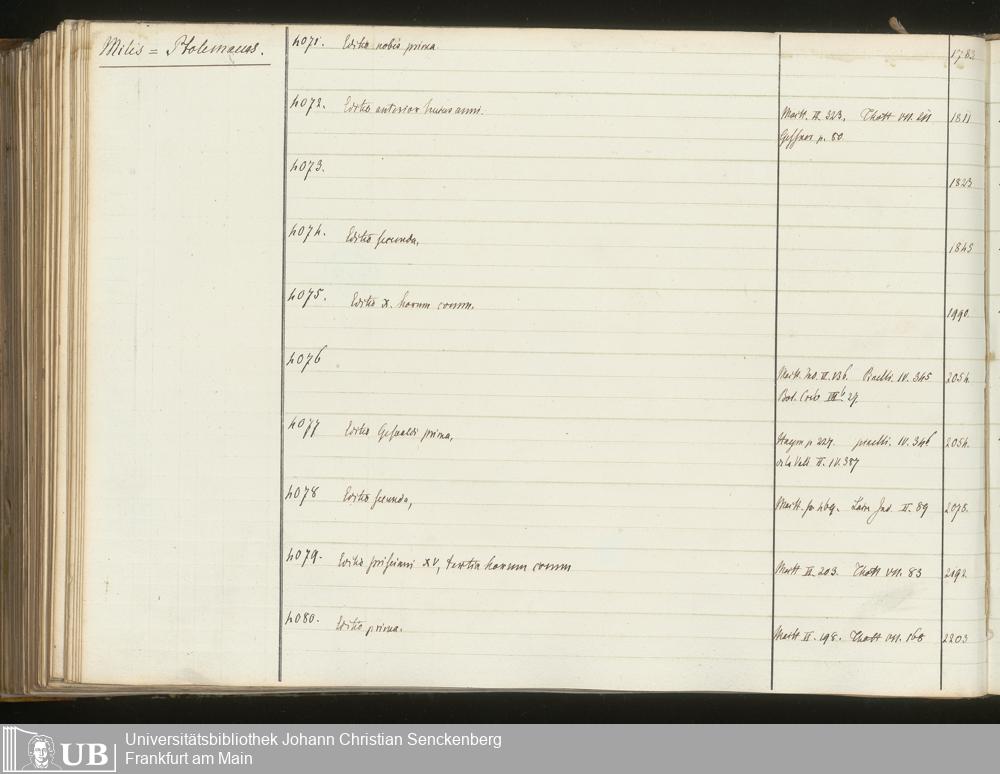 Milis = Ptolemaeus.
4071. Editio nobis prima 1782
4072. Editio anterior huius anni. Maitt. II. 323. Thott VII. 1811
Gessner p. 50
4073. 1823
4074. Editio secunda, 1845
4075. Editio X. horum comm. 1990.
4076 Maitt. Ind. II. Pinelli. IV. 345 2054.
4077 Editio Gesualdi prima, Haym p 227. pinelli. IV. 346 2054.
II. IV. 387
4078 Editio secunda, Maitt. Ind. II. 89 2078.
4079. Editio prisciani XV, tertia horum comm Maitt II. 203. Thott VII. 83 2192
4080. Editio prima. Maitt II. 198. Thott VII. 168 2203
UB Universitätsbibliothek Johann Christian Senckenberg
Frankfurt am Main